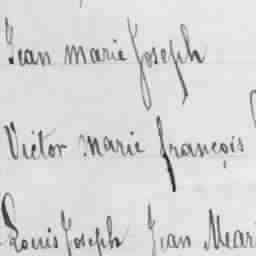 Jean marie Joseph
Victor marie françois
Louis Joseph Jean Mari